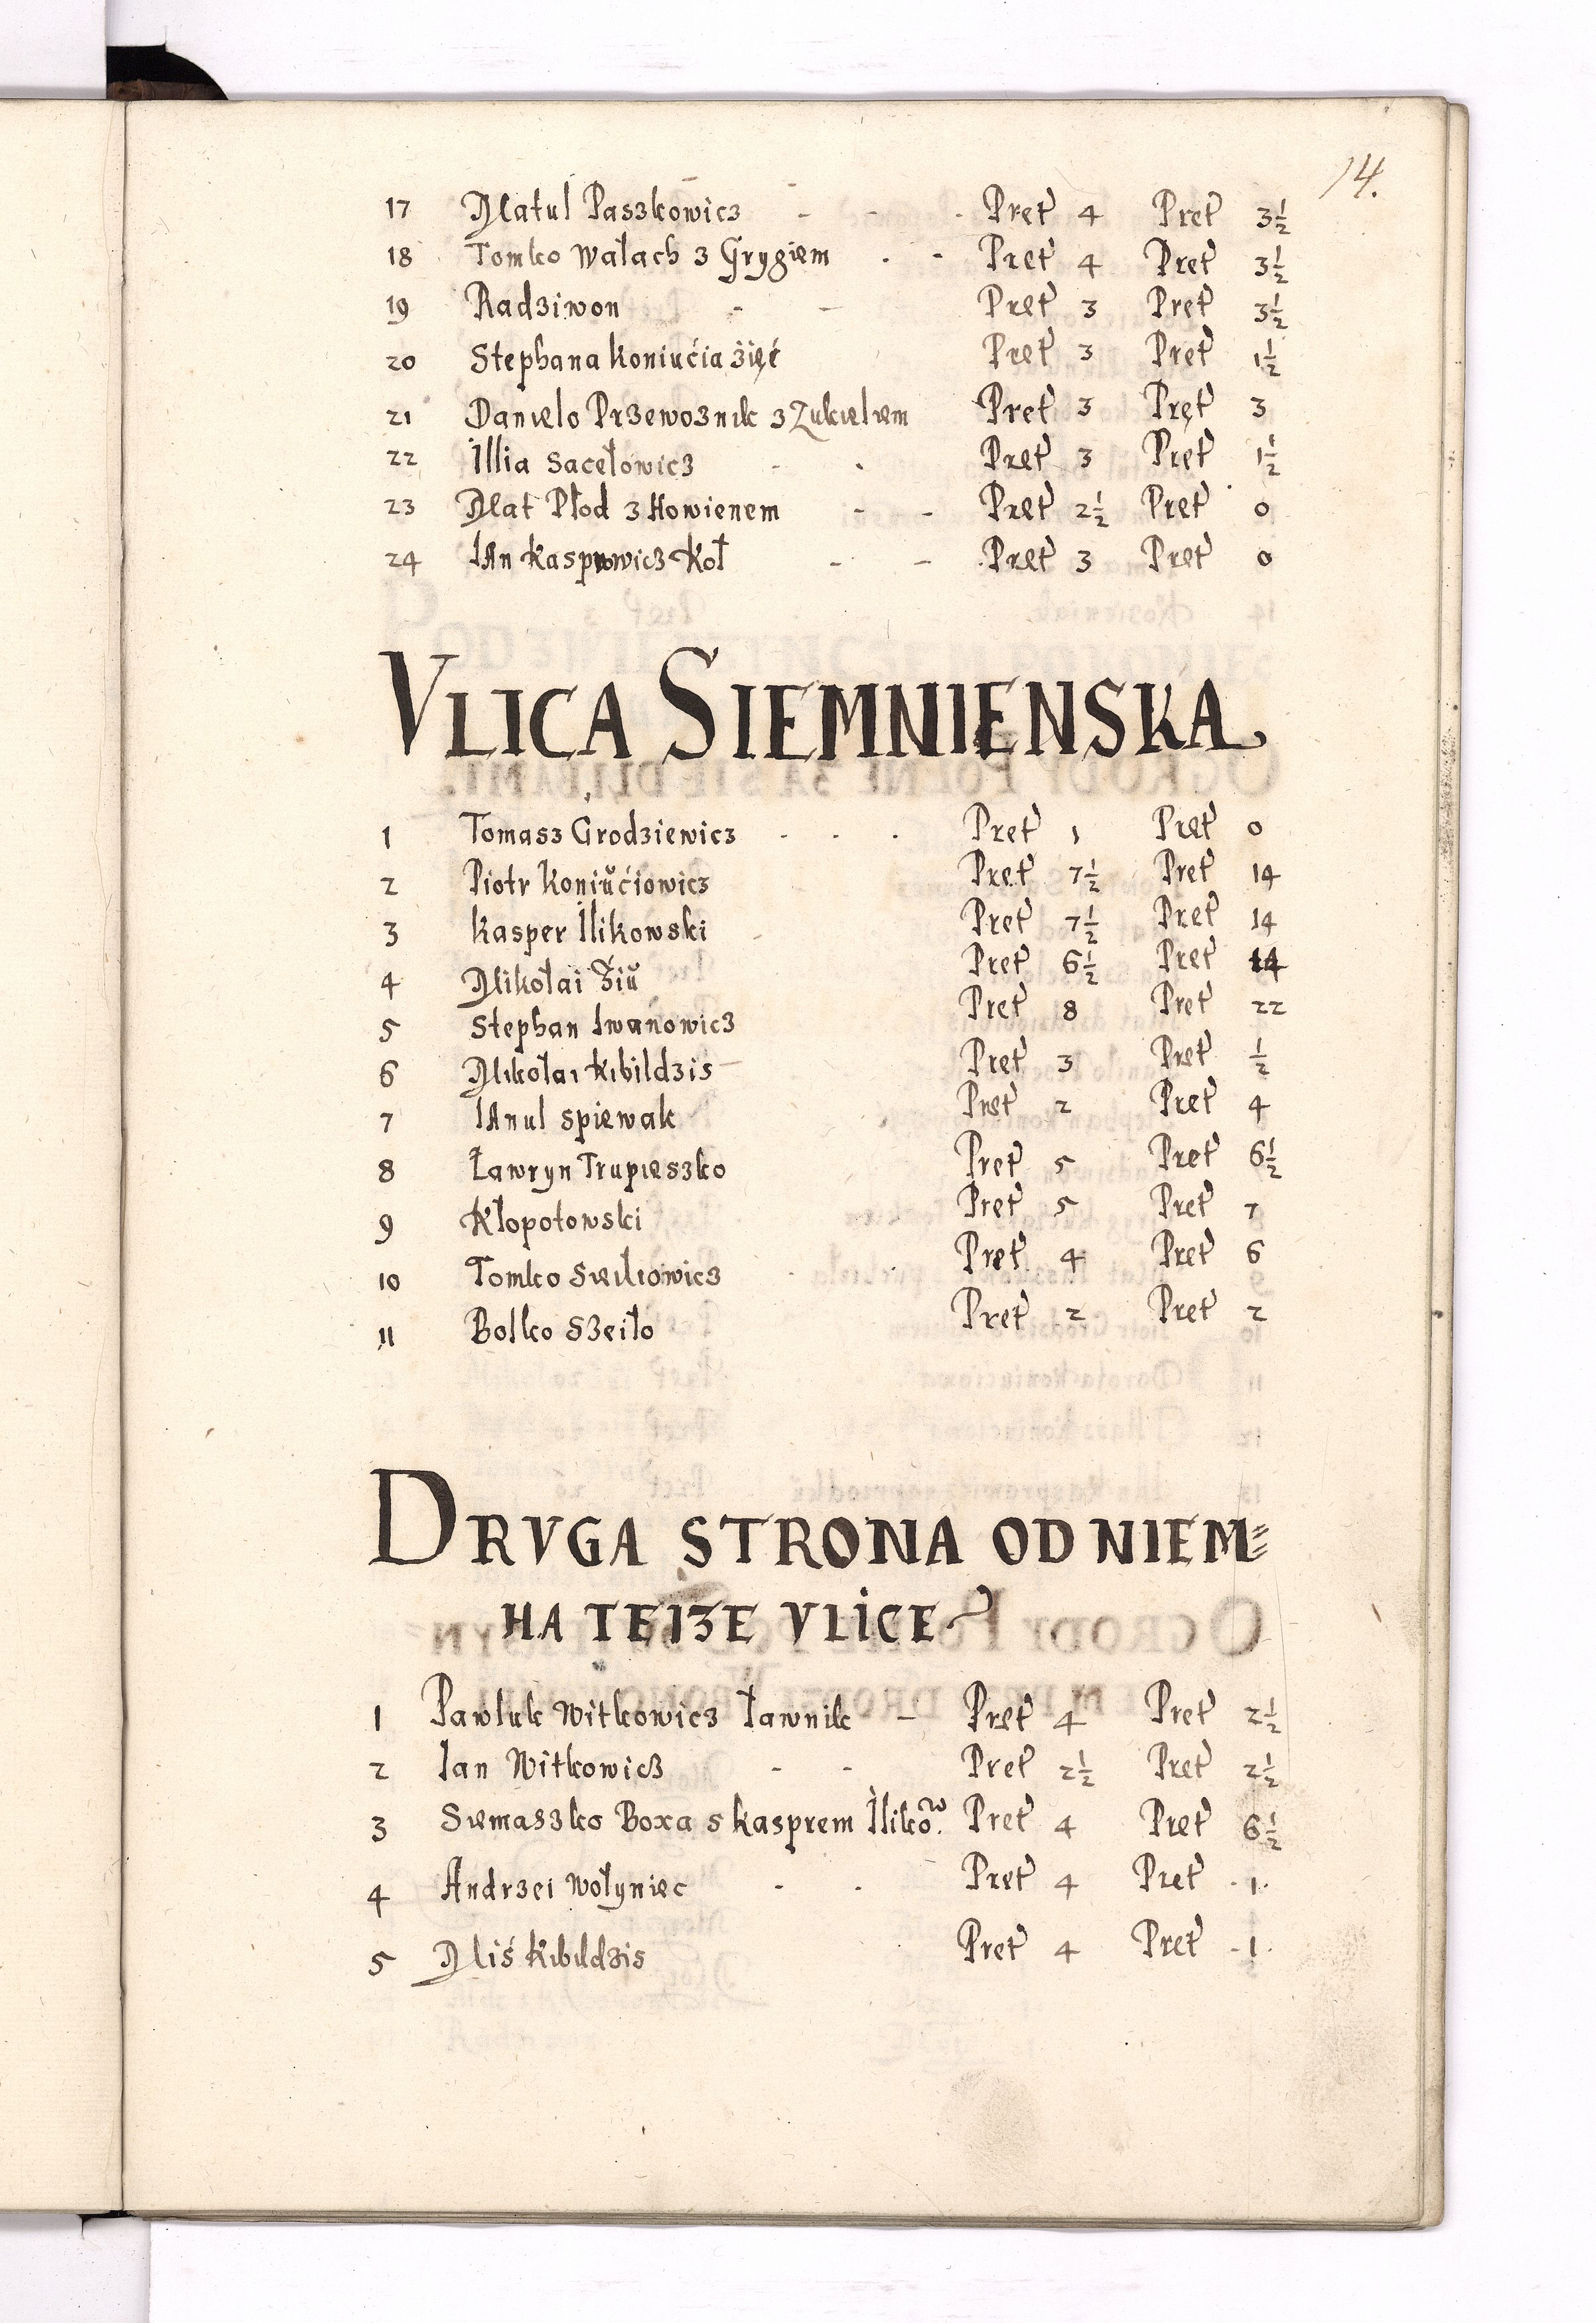 14.
17 Matul Paszkowicz - - . Pręt 4 Pręt 3½
18 Tomko Wałach z Grygiem . - Pręt 4 Pręt 3½
19 Radziwon - - Pręt 3 Pręt 3½
20 Stephana Koniucia Zięć Pręt 3 Pręt 1½
21 Danielo Przewoznik z Zukielem Pręt 3 Pręt 3
22 Illia Sacełowicz - . Pręt 3 Pręt 1½
23 Mat Płod z Howienem - - Pręt 2½ Pręt 0
24 Ian Kasprowicz Koł - - Pręt 3 Pręt 0
VLICA SIEMNIENSKA
1 Tomasz Grodziewicz - . . Pręt 1 Pręt 0
2 Piotr Koniŭciowicz Pręt 7½ Pręt 14
3 Kasper Ilikowski - Pręt 7½ Pręt 14
4 Mikołai Ziŭ Pręt 6½ Pręt 14
5 Stephan Iwanowicz Pręt 8 Pręt 22
6 Mikołai Kibildzis Pręt 3 Pręt ½
7 Ianul Spiewak Pręt 2 Pręt 4
8 Ławryn Trupieszko Pręt 5 Pręt 6½
9 Kłopotowski Pręt 5 Pręt 7
10 Tomko Pręt 4 Pręt 6
11 Bolko Szeiło Pręt 2 Pręt 2
DRVGA STRONA OD NIEM=
NA TEIZE VLICE
1 Pawluk Witkowicz Ławnik - Pręt 4 Pręt 2½
2 Ian Witkowicz - - Pręt 2½ Pręt 2½
3 Siemaszko Boxa s Kasprem Iliko.w Pręt 4 Pręt 6½
4 Andrzei Wołyniec - . Pręt 4 Pręt .1.
5 Miś Kibildzis Pręt 4 Pręt .1.